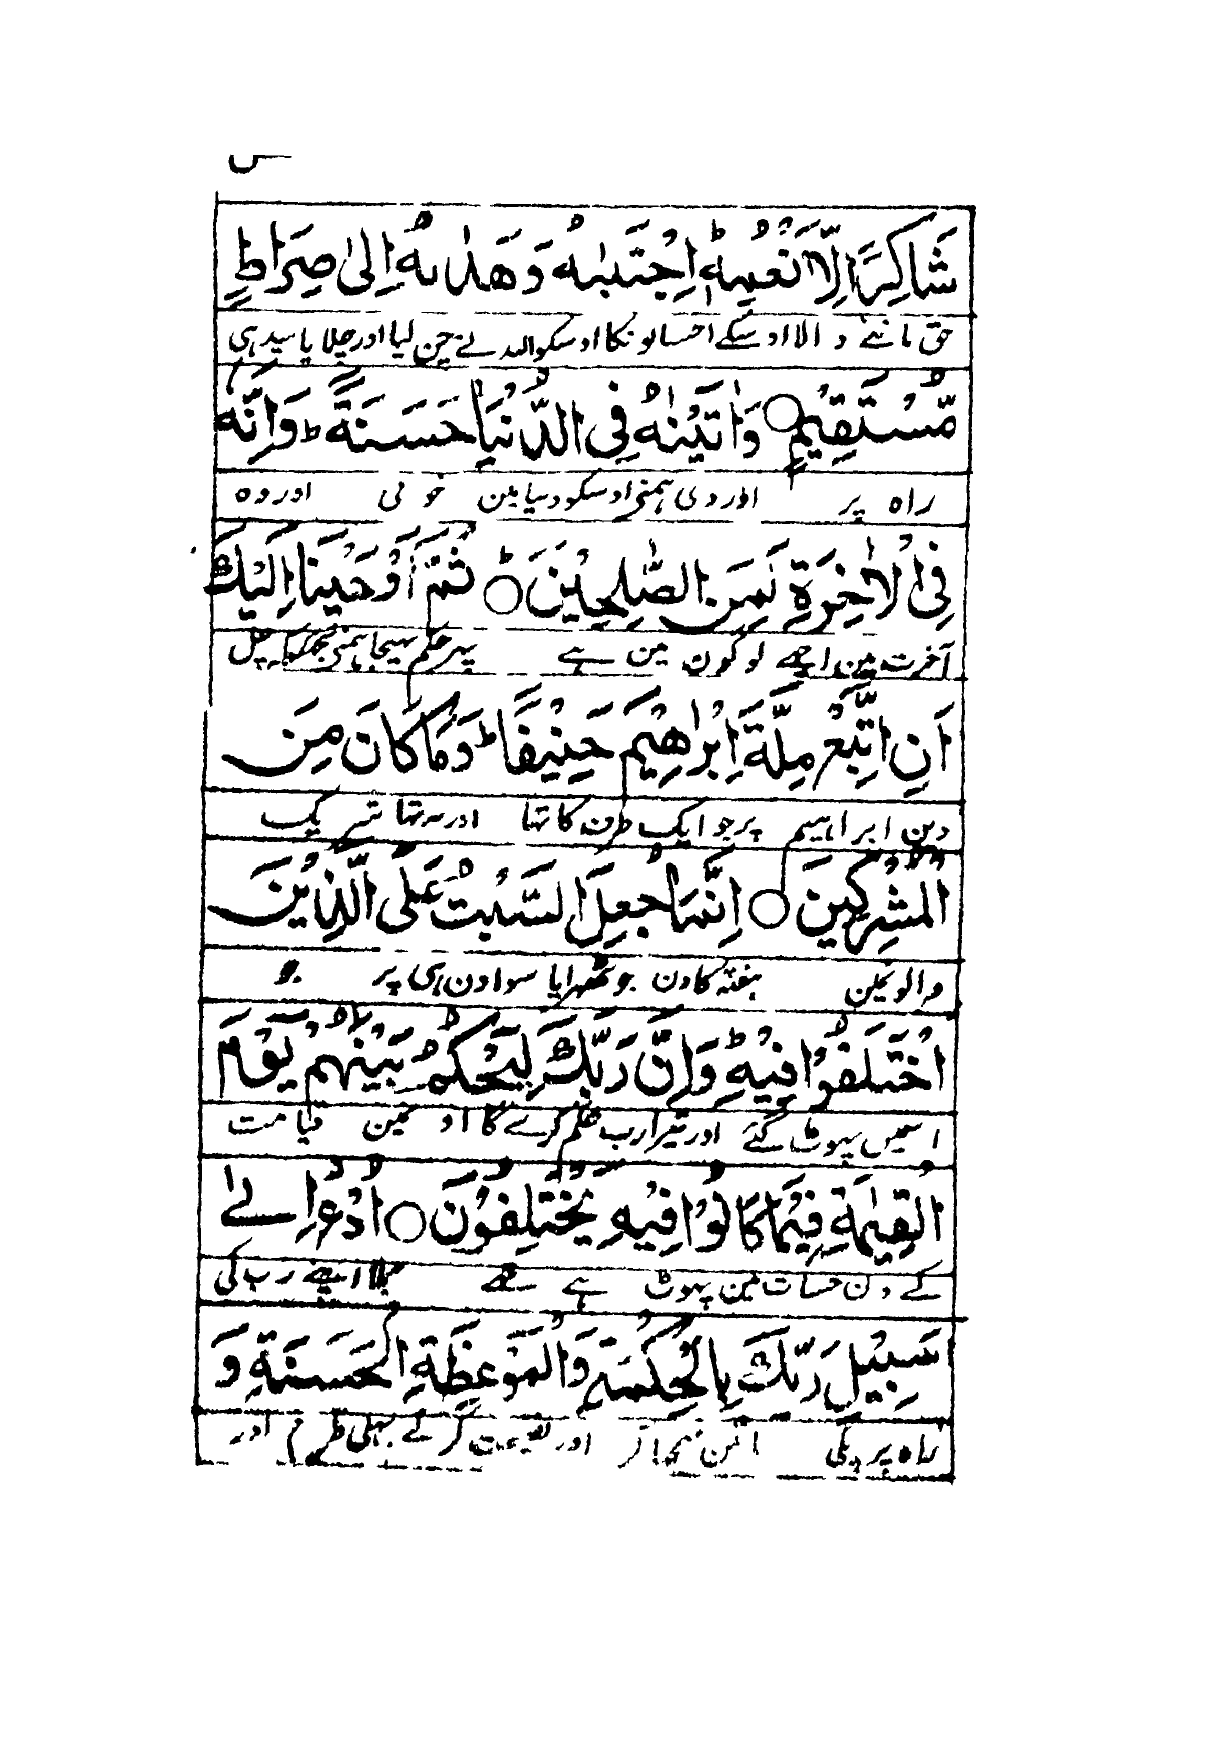 شَاكِرًا لِّاَنْعُمِهٖ ؕ اِجْتَبٰىهُ وَهَدٰىهُ اِلٰى صِرَاطٍ
حق ماننے والا اوسکے احسانونکا اوسکو اللہ نے چن لیا اور چلایا سیدہی
مُّسْتَقِيْمٍ ○ وَاٰتَيْنٰهُ فِى الدُّنْيَا حَسَنَةً ؕ وَاِنَّهٗ
راہ پر اور دی ہمنی اوسکو دنیا مین خوبی اور وہ
فِى الْاٰخِرَةِ لَمِنَ الصّٰلِحِيْنَ ؕ ○ ثُمَّ اَوْحَيْنَا اِلَيْكَ
آخرت مین اچھے لوگون مین ہے پہر حکم بہیجا ہمنی تجھکو کہ چل
اَنِ اتَّبِعْ مِلَّةَ اِبْرٰهِيْمَ حَنِيْفًا ؕ وَمَا كَانَ مِنَ
دین ابراہیم پر جو ایک طرف کا تہا اور نہ تہا شریک
الْمُشْرِكِيْنَ ○ اِنَّمَا جُعِلَ السَّبْتُ عَلَى الَّذِيْنَ
والونمین ہفتہ کا دن جو ٹھہرایا سو اون ہی پر جو
اخْتَلَفُوْا فِيْهِ ؕ وَاِنَّ رَبَّكَ لَيَحْكُمُ بَيْنَهُمْ يَوْمَ
اسمیں پہوٹ گئے اور تیرا رب حکم کرے گا اونمین قیامت
الْقِيٰمَةِ فِيْمَا كَانُوْا فِيْهِ يَخْتَلِفُوْنَ ○ اُدْعُ اِلٰى
کے دن جس بات مین پہوٹ رہے تھے بلا اپنے رب کی
سَبِيْلِ رَبِّكَ بِالْحِكْمَةِ وَالْمَوْعِظَةِ الْحَسَنَةِ وَ
راہ پر پکی سمجھا کر اور نصیحت کر کے بہلی طرح اور